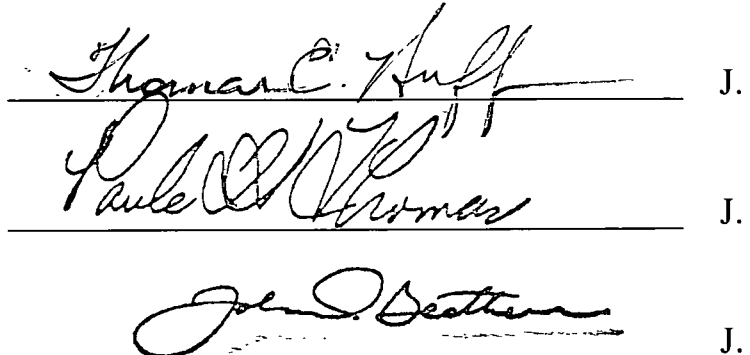 Thomas E. Huff J.
Paul A. Thomas J.
John D. J.